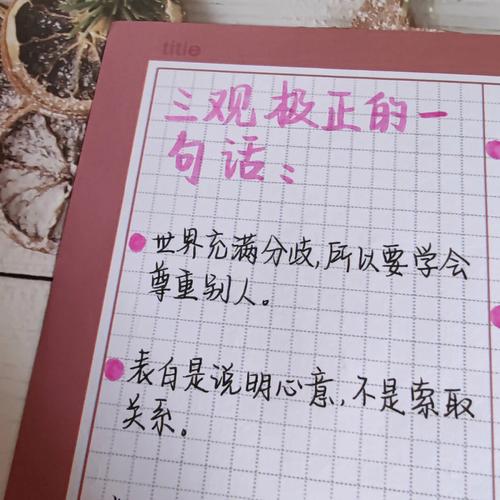 title
三观极正的一
句话：
世界充满分歧，所以要学会
尊重别人。
表白是说明心意，不是索取
关系。